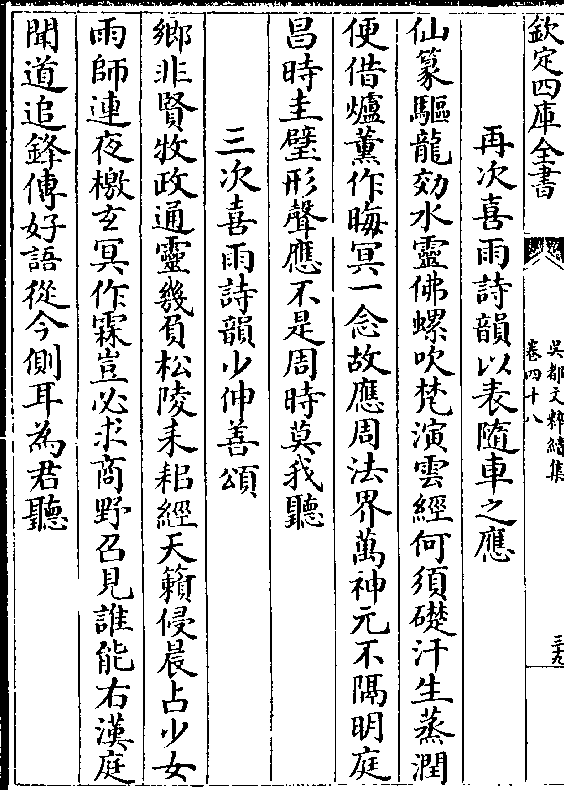 欽定四庫全書
吳都文粹續集
卷四十八
三九
再次喜雨詩韻以表隨車之應
仙篆驅龍効水靈佛螺吹梵演雲經何須礎汗生蒸潤
便借爐薰作晦冥一念故應周法界萬神元不隔明庭
昌時圭璧形聲應不是周時莫我聽
三次喜雨詩韻少伸善頌
鄉非賢牧政通靈幾負松陵耒耜經天籟侵晨占少女
雨師連夜檄玄冥作霖豈必求商野召見誰能右漢庭
聞道追鋒傳好語從今側耳為君聽